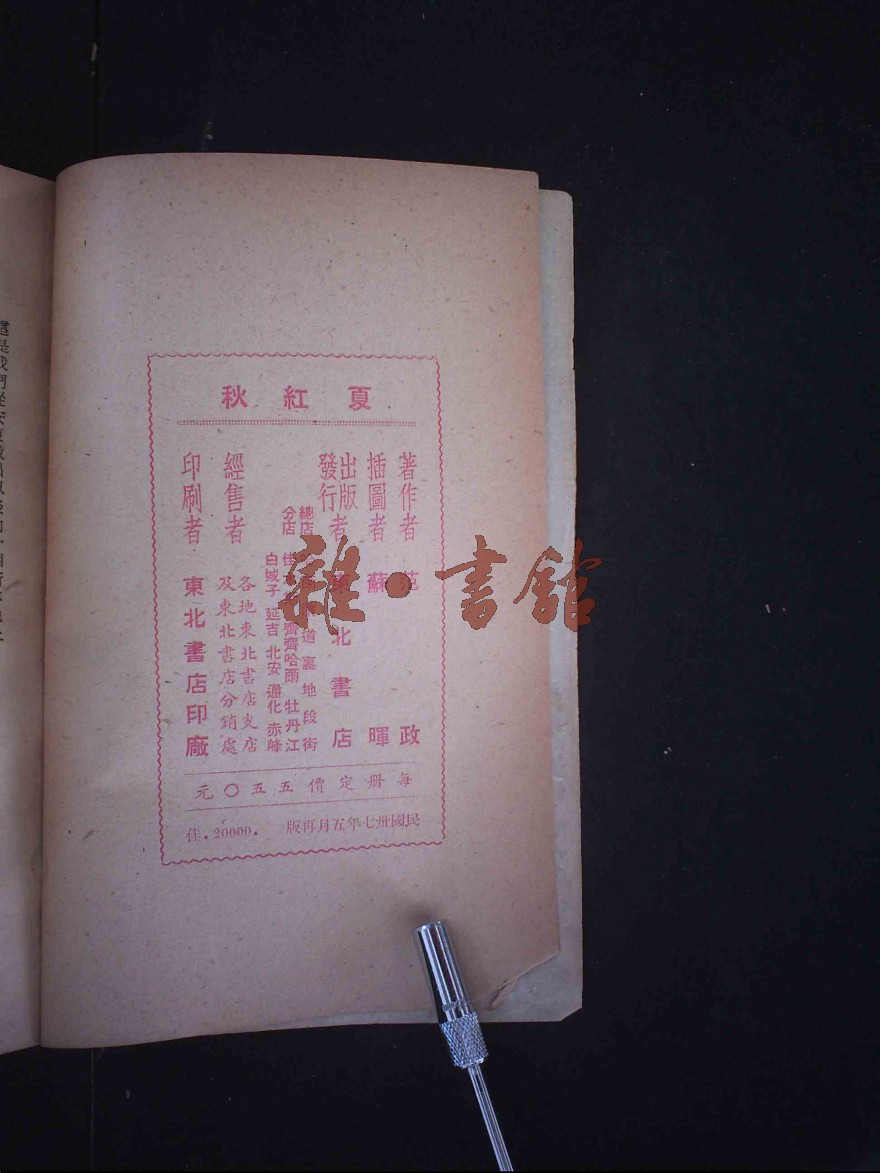 夏紅秋
著作者 范政
插圖者 蘇暉
出版者
發行者 東北書店
總店 道裏地段街
分店 佳 齊齊哈爾 牡丹江
白城子 延吉 北安 通化 赤峰
經售者 各地東北書店支店
及東北書店分銷處
印刷者 東北書店印廠
每册定價五五〇元
民國卅七年五月再版 佳.20000.
雜·書館